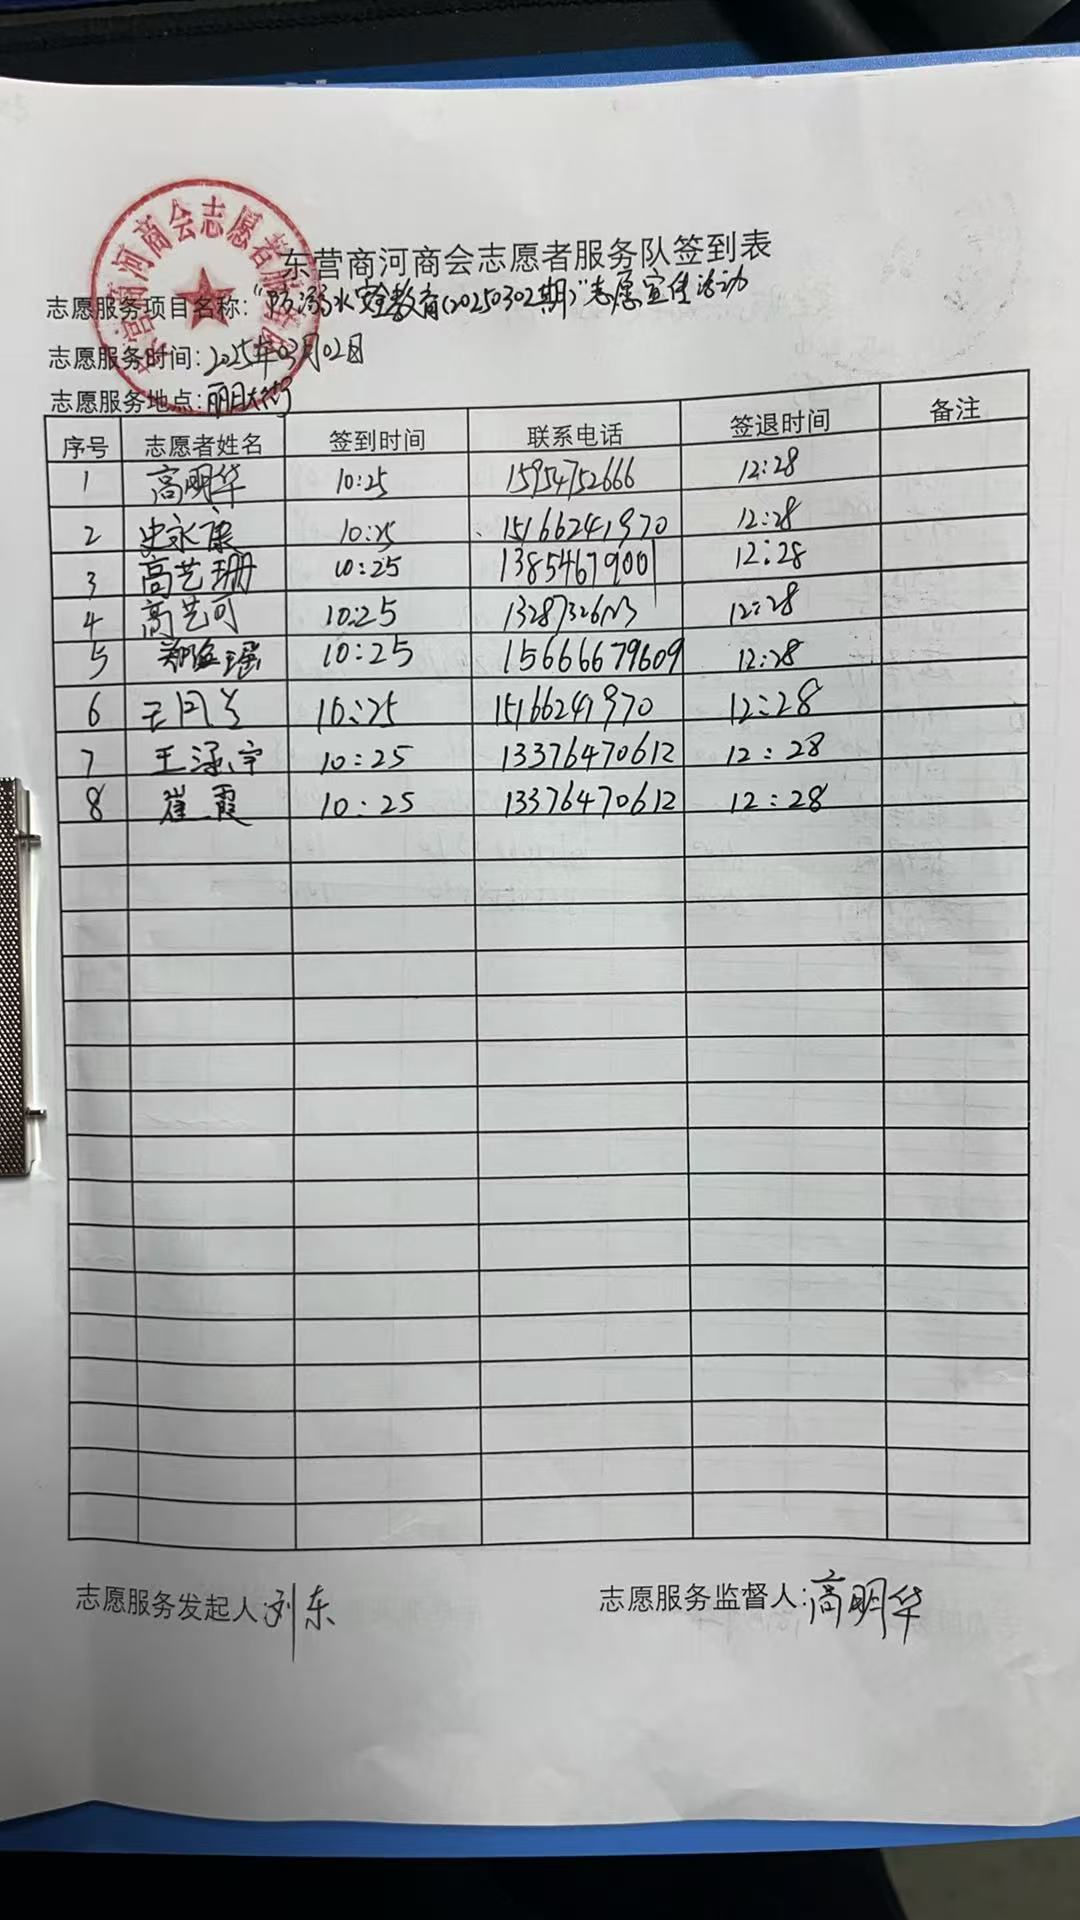 东营商河商会志愿者服务队
东营商河商会志愿者服务队签到表
志愿服务项目名称:“防溺水安全教育(20250302期)”志愿宣传活动
志愿服务时间:2025年03月02日
志愿服务地点:丽日大街
序号 志愿者姓名 签到时间 联系电话 签退时间 备注
1 高明华 10:25 15954752666 12:28
2 史永康 10:25 15166241970 12:28
3 高艺珊 10:25 13854679001 12:28
4 高艺可 10:25 12:28
5 10:25 15666679609 12:28
6 10:25 15166241970 12:28
7 王涵宇 10:25 13376470612 12:28
8 崔霞 10:25 13376470612 12:28
志愿服务发起人:刘东
志愿服务监督人:高明华